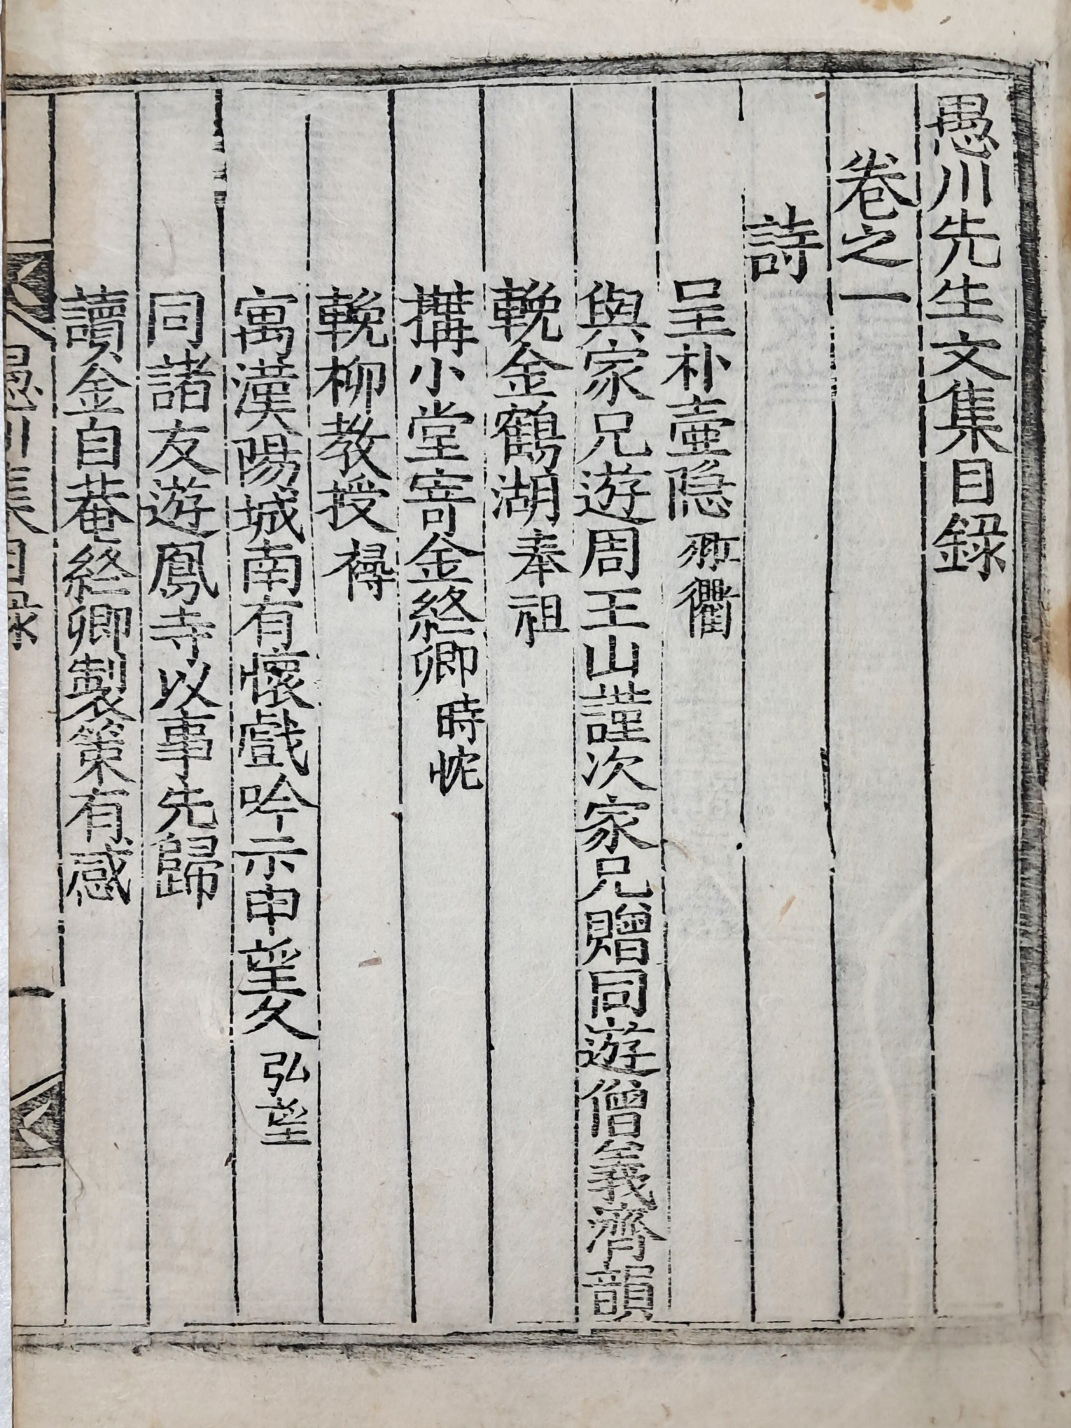 愚川先生文集目錄
卷之一
詩
呈朴壺隱 衢
與家兄遊周王山謹次家兄贈同遊僧義濟韻
輓金鶴湖奉祖
搆小堂寄金終卿時忱
輓柳教授𥛠
寓漢陽城南有懷戲吟示申望久弘望
同諸友遊鳳寺以事先歸
讀金自菴終卿製策有感
愚川集目录 一